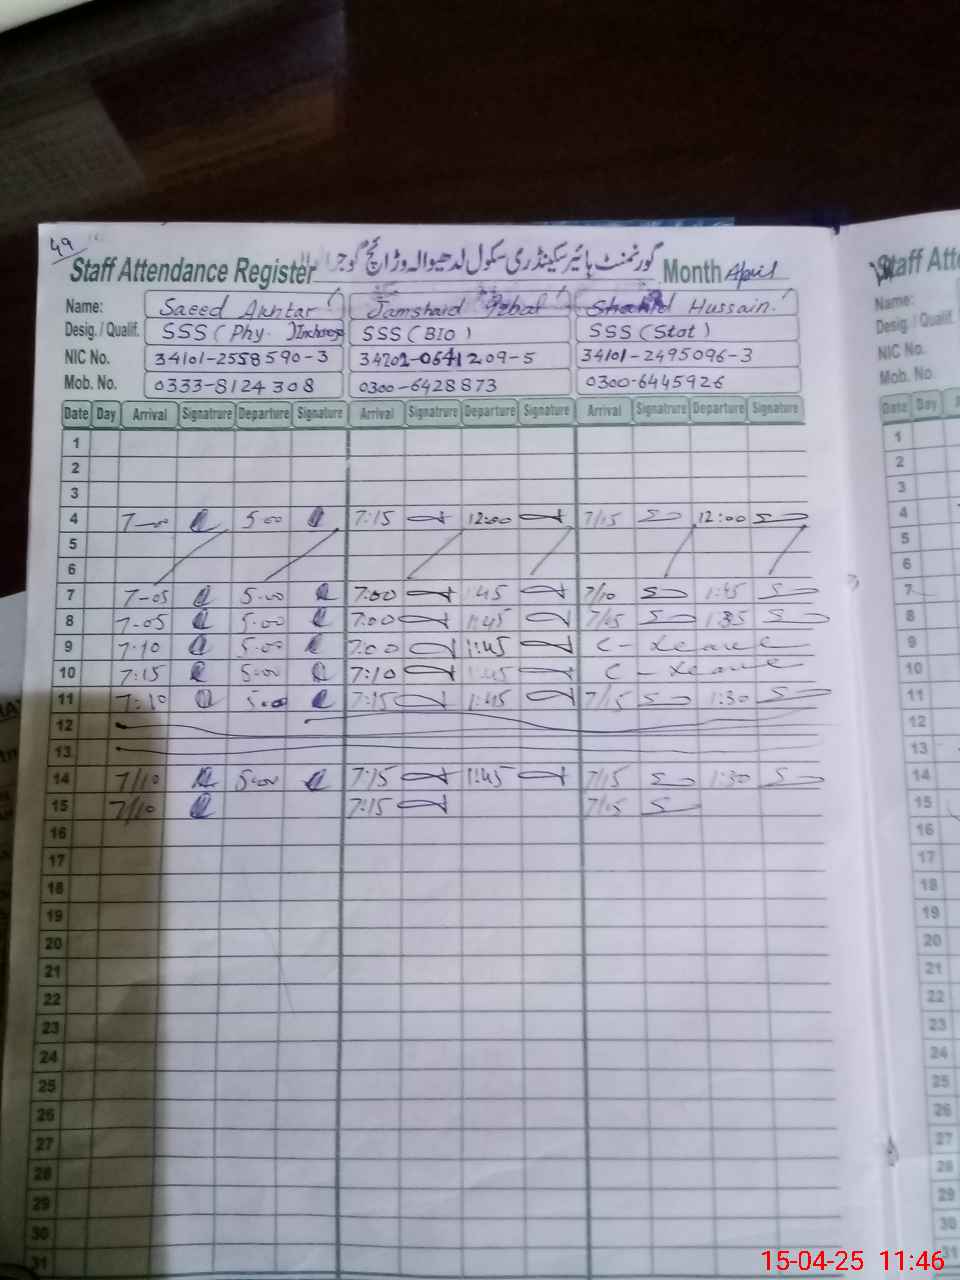 49
Staff Attendance Register گورنمنٹ ہائیر سیکنڈری سکول لدھیوالہ وڑائچ Month April
Name: Saeed Akhtar Jamshaid Iqbal Hussain
Desig. / Qualif. SSS (Phy.) Incharge SSS (BIO) SSS (Stat)
NIC No. 34101-2558590-3 34202-0641209-5 34101-2495096-3
Mob. No. 0333-8124308 0300-6428873 0300-6445926
Date Day Arrival Signatrure Departure Signature Arrival Signatrure Departure Signature Arrival Signatrure Departure Signature
1
2
3
4 7-00 5-00 7:15 12:00 7/15 12:00
5
6
7 7-05 5-00 7:00 1:45 7/10 1:45
8 7-05 5-00 7:00 1:45 7/15 1:35
9 7-10 5-00 7:00 1:45 C - Leave
10 7:15 5-00 7:10 1:45 C - Leave
11 7:10 5-00 7:15 1:45 7/15 1:30
12
13
14 7/10 5-00 7:15 1:45 7/15 1:30
15 7/10 7:15 7/15
16
17
18
19
20
21
22
23
24
25
26
27
28
29
30
31
Staff Atte
Name:
Desig. / Qualif.
NIC No.
Mob. No.
Date Day
1
2
3
4
5
6
7
8
9
10
11
12
13
14
15
16
17
18
19
20
21
22
23
24
25
26
27
28
29
30
31
15-04-25 11:46